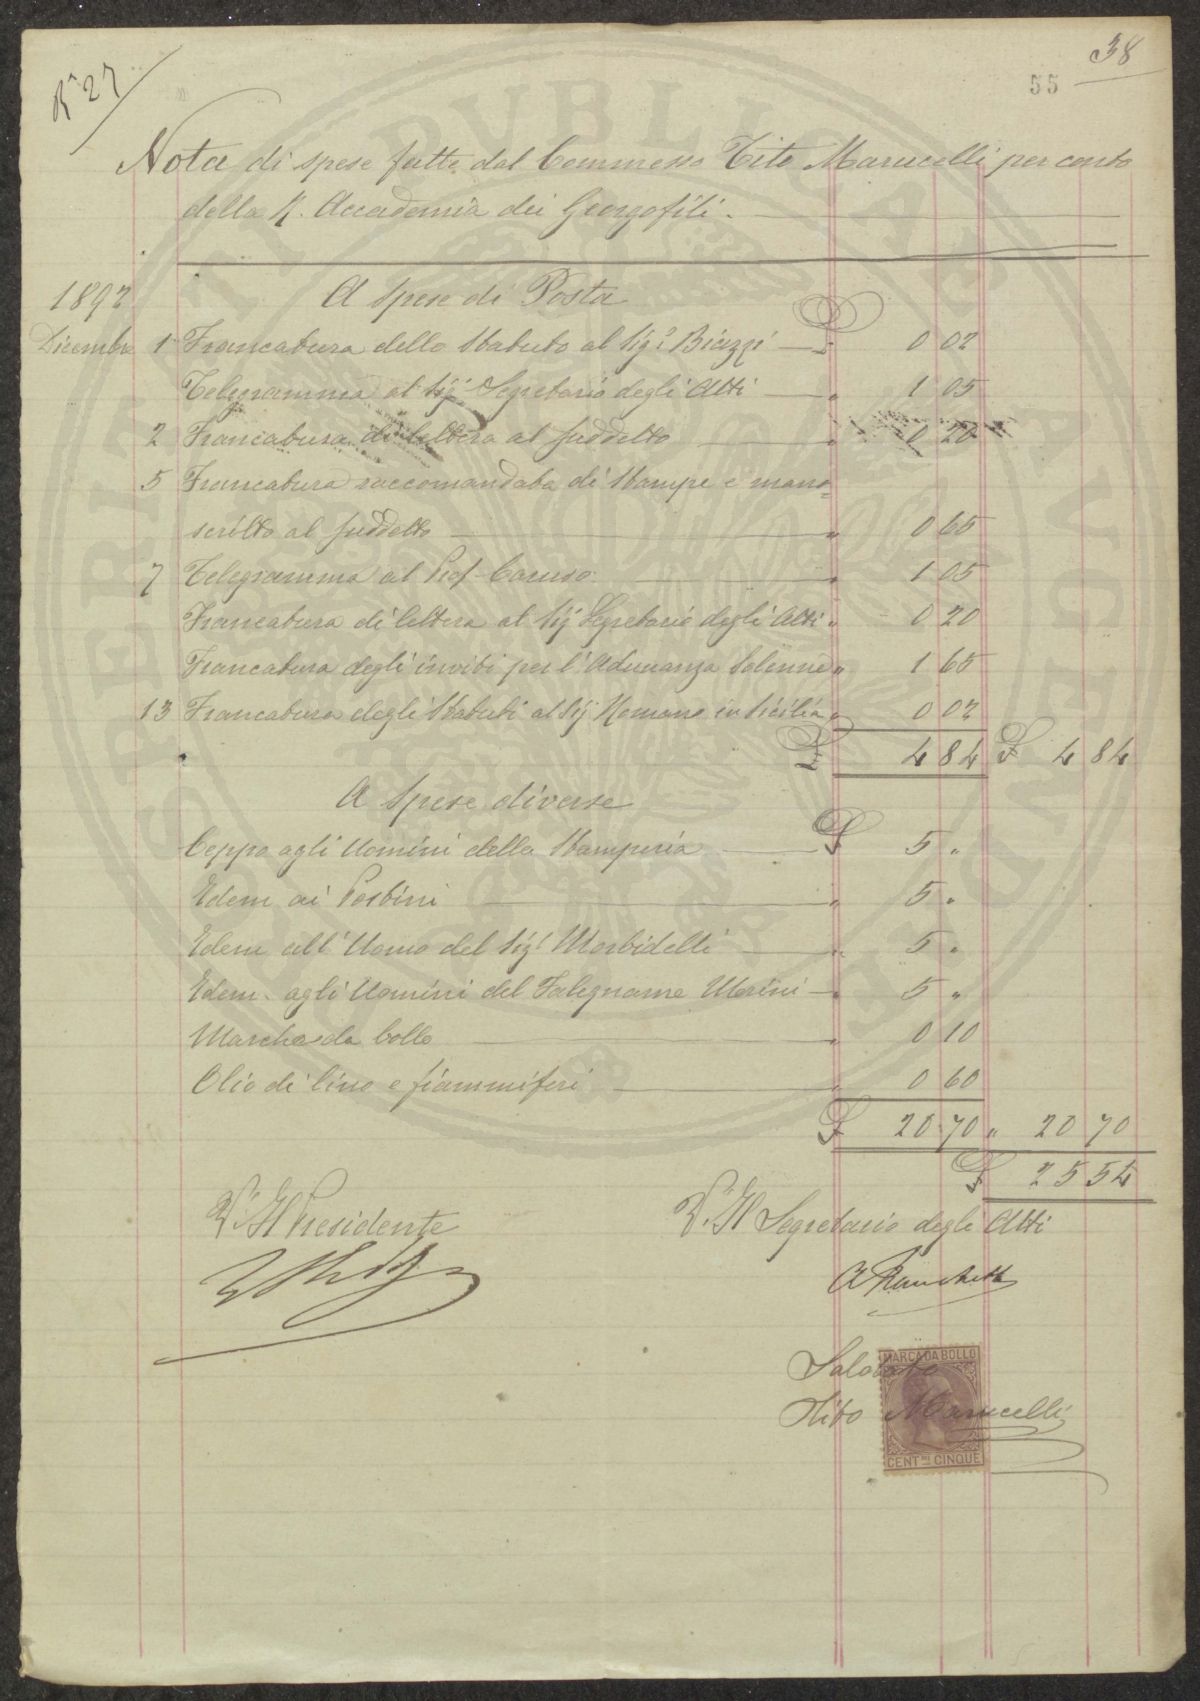 38
55
Rta 27
Nota di spese fatte dal Commesso Tito Marucelli per conto
della R. Accademia dei Georgofili.
1892 A Spese di Posta
Dicembre 1 Francatura dello Statuto al Sigr Biazzi £ 0 02
Telegramma al Sig Segretario degli Atti " 1 05
2 Francatura di lettera al suddetto " 0 20
5 Francatura raccomandata di Stampe e mano=
scritto al suddetto " 0 65
7 Telegramma al Prof. Caruso " 1 05
Francatura di lettera al Sig Segretario degli Atti " 0 20
Francatura degli inviti per l'Adunanza Solenne " 1 65
13 Francatura degli Statuti al Sig Romano in Sicilia " 0 02
£ 4 84 £ 4 84
A Spese diverse
Ceppo agli Uomini della Stamperia £ 5 "
Idem ai Postini " 5 "
Idem all'Uomo del Sigr Morbidelli " 5 "
Idem agli Uomini del Falegname Merini " 5 "
Marche da bollo " 0 10
Olio di lino e fiammiferi " 0 60
£ 20 70 " 20 70
£ 25 54
V. Il Presidente
V. Il Segretario degli Atti
Saldato
Tito Marucelli
MARCA DA BOLLO
CENTMI CINQUE